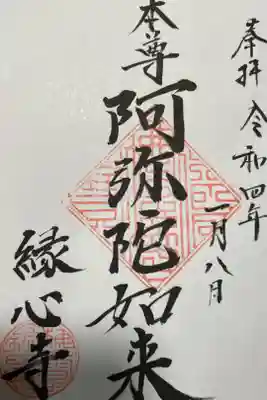 奉拝 令和四年
一月八月
本尊
阿弥陀如来
縁心寺